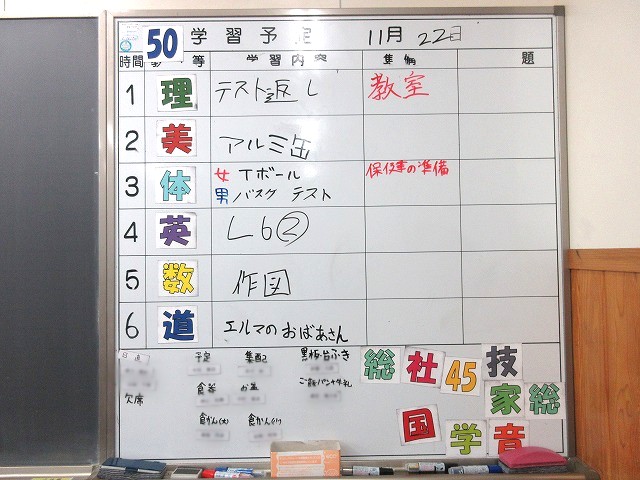 50 学習予定 11月22日
時間 教 等 学習内容 準備 題
1 理 テスト返し 教室
2 美 アルミ缶
3 体 女 Tボール
男 バスケ テスト
4 英 L6②
5 数 作図
6 道 エルマのおばあさん
日直 予定 集配2 黒板・台ふき
食器 お盆 ご飯パン牛乳
欠席
食かん(大) 食かん(小)
総 社 45 技
家 総
国 学 音